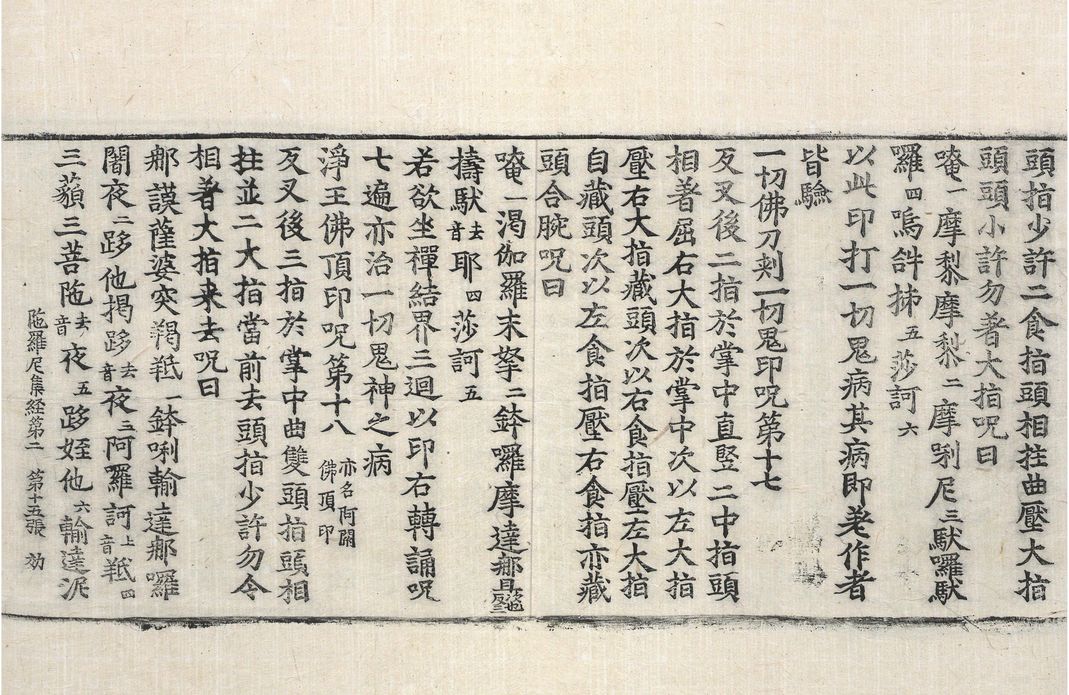 頭指少許二食指頭相拄曲壓大指
頭頭小許勿著大指呪曰
唵一摩黎摩黎二摩唎尼三馱囉馱
囉四嗚𤙖抪五莎訶六
以此印打一切鬼病其病即差作者
皆驗
一切佛刀剌一切鬼印呪第十七
反叉後二指於掌中直竪二中指頭
相著屈右大指於掌中次以左大指
壓右大指藏頭次以右食指壓左大指
自藏頭次以左食指壓右食指亦藏
頭合腕呪曰
唵一渴伽羅末拏二鉢囉摩達那
擣馱去音耶四莎訶五
若欲坐禪結界三迴以印右轉誦呪
七遍亦治一切鬼神之病
淨王佛頂印呪第十八亦名阿閦佛頂印
反叉後三指於掌中曲雙頭指頭相
拄並二大指當前去頭指少許勿令
相著大指来去呪曰
那謨薩婆突羯羝一鉢唎輸達那囉
闍夜二跢他揭跢去音夜三阿羅訶上音羝四
三藐三菩陁去音夜五跢姪他六輸達泥
陁羅尼集経第二 第十五張 効